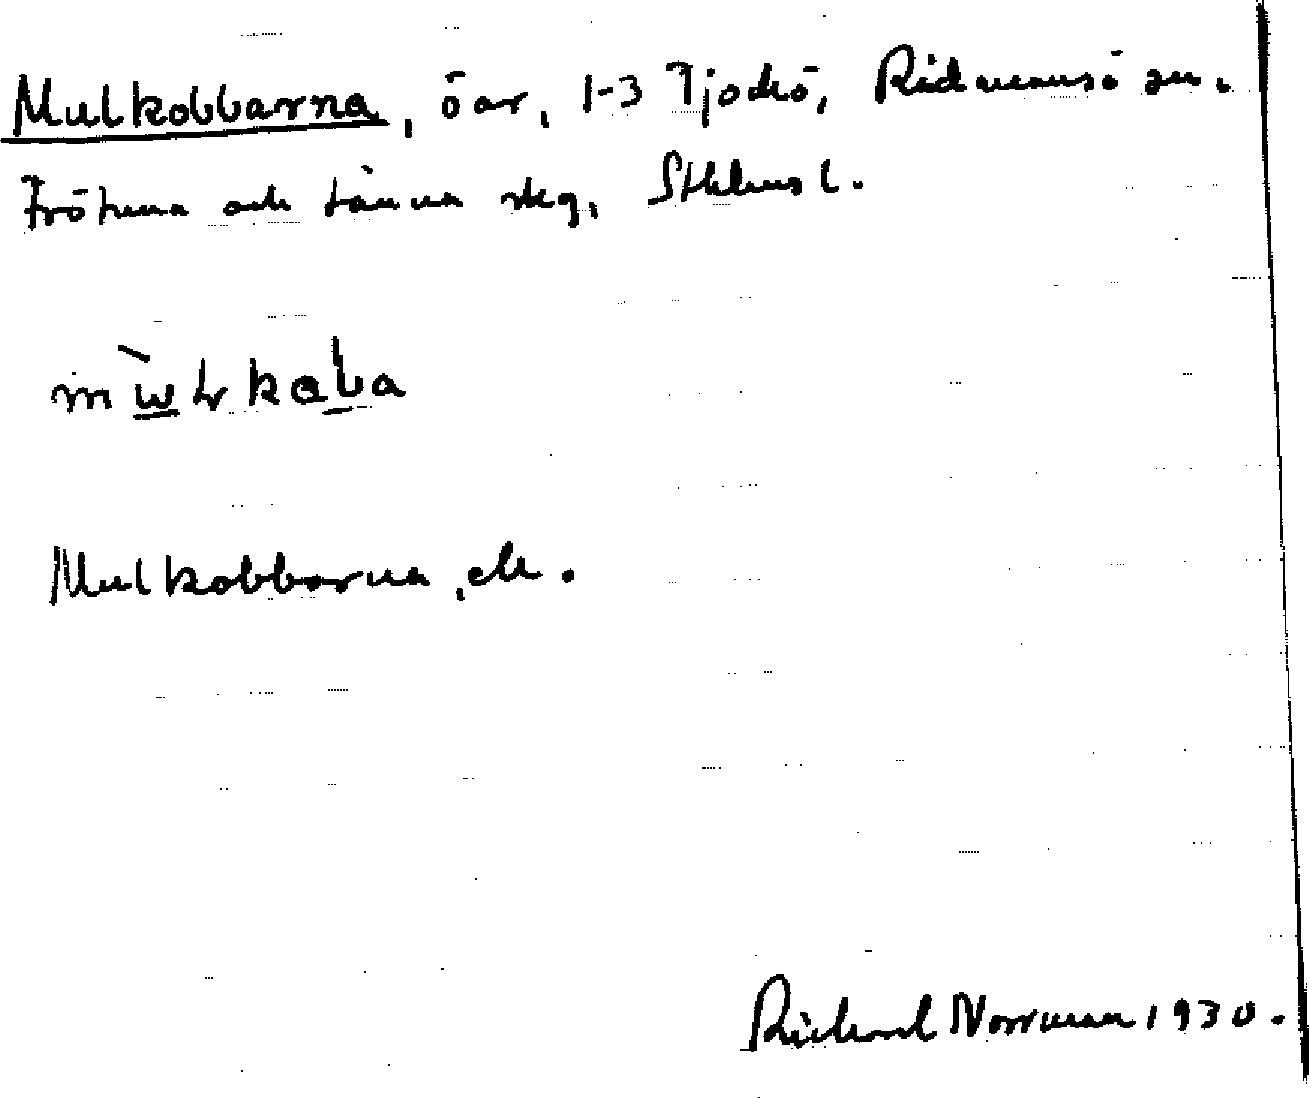 Mulkobbarna, öar, 1-3 Tjockö, Rådmansö sn.
Frötuna och Länna skg, Sthlms l.
Mulkobbarna, ek.
Richard Norrman 1930.